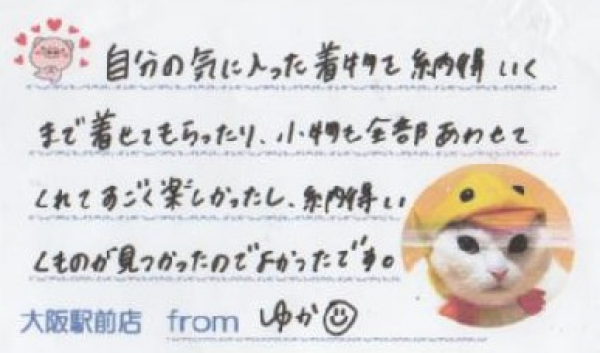 自分の気に入った着物を納得いく
まで着せてもらったり、小物も全部あわせて
くれてすごく楽しかったし、納得い
くものが見つかったのでよかったです。
大阪駅前店 from ゆか